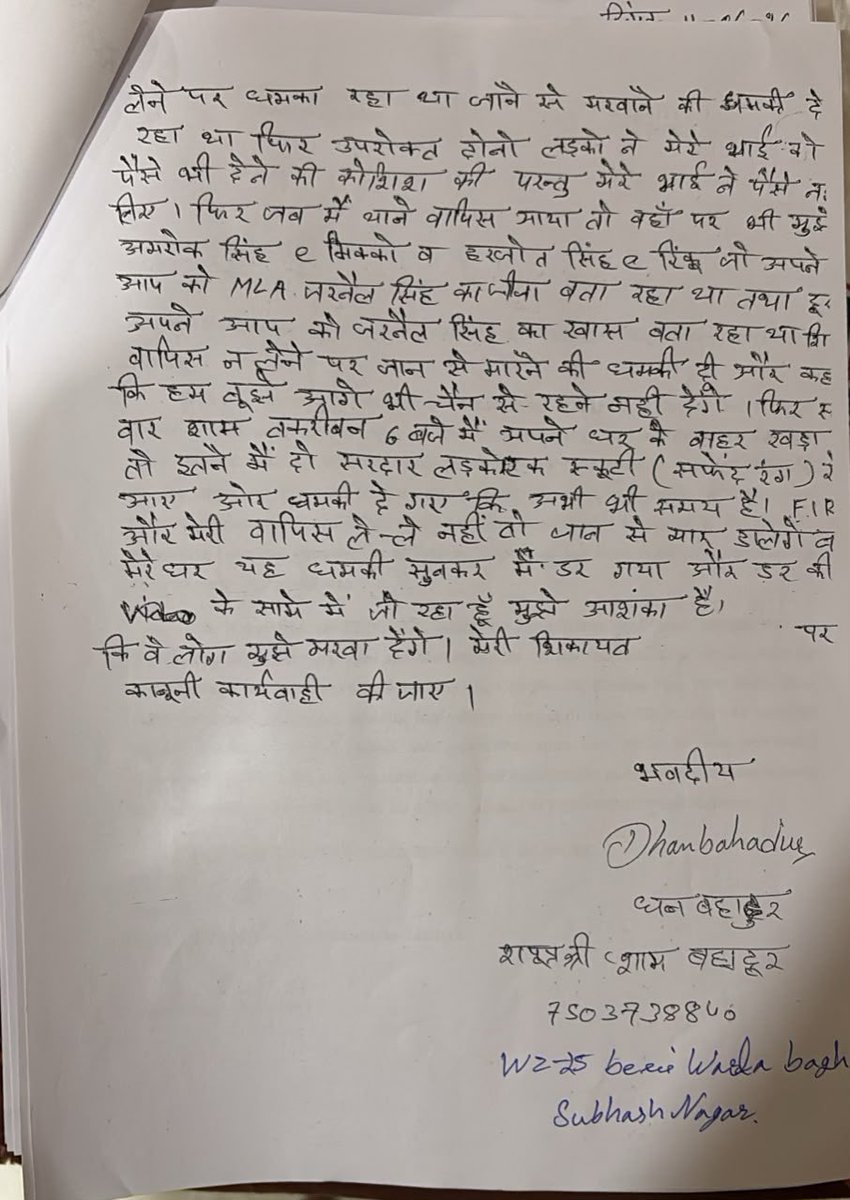 लेने पर धमका रहा था जाने से मरवाने की धमकी दे
रहा था फिर उपरोक्त दोनो लड़को ने मेरे भाई को
पैसे भी देने की कोशिश की परन्तु मेरे भाई ने पैसे न
लिए। फिर जब मैं थाने वापिस आया तो वहाँ पर भी मुझे
अमरोक सिंह @ मिक्को व हरजोत सिंह @ रिंकू जो अपने
आप को MLA जरनैल सिंह का जीजा बता रहा था तथा
अपने आप को जरनैल सिंह का खास बता रहा था
वापिस न लेने पर जान से मारने की धमकी दी और कह
कि हम तुझे आगे भी चैन से रहने नही देगे। फिर
वार शाम तकरीबन 6 बजे मैं अपने घर के बाहर खड़ा
तो इतने मैं दो सरदार लड़के एक स्कूटी (सफेद रंग)
आए ओर धमकी दे गए कि अभी भी समय है। FIR
और मेरी वापिस ले-ले नहीं तो जान से मार डालेगे व
मेरे घर यह धमकी सुनकर मैं डर गया और डर की
के साये में जी रहा हूँ मुझे आशंका है।
कि वे लोग मुझे मरवा देंगे। मेरी शिकायत पर
कानूनी कार्यवाही की जाए।
भवदीय
Dhanbahadur
धन बहादुर
श्री शाम बहादूर
W2-25 Warla bagh
Subhash Nagar.